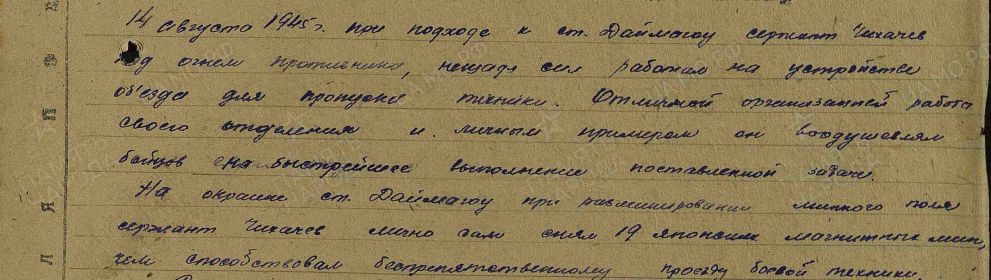 14 августа 1945 г. при подходе к ст. Даймагоу сержант Чихачев
под огнем противника, нещадя сил работал на устройстве
объезда для пропуска техники. Отличной организацией работы
своего отделения и личным примером он воодушевлял
бойцов на быстрейшее выполнение поставленной задачи.
На окраине ст. Даймагоу при разминировании минного поля
сержант Чихачев лично сам снял 19 японских магнитных мин,
чем способствовал беспрепятственному проезду боевой техники.